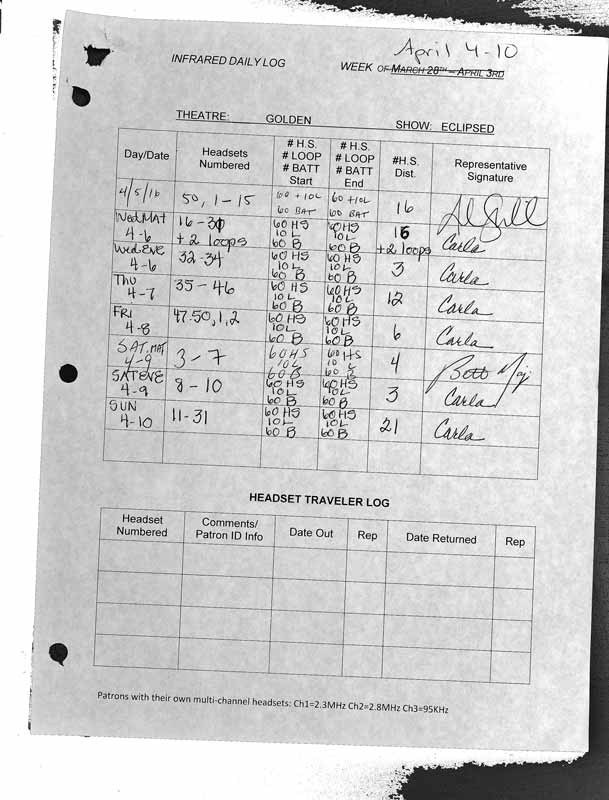 April 4-10
INFRARED DAILY LOG WEEK OF MARCH 28TH – APRIL 3RD
THEATRE: GOLDEN SHOW: ECLIPSED
Day/Date Headsets Numbered # H.S. # LOOP # BATT Start # H.S. # LOOP # BATT End #H.S. Dist. Representative Signature
4/5/16 50, 1-15 60 + 10L 60 BAT 60 + 10L 60 BAT 16
Wed MAT 4-6 16-30 + 2 loops 60 HS 10 L 60 B 60 HS 10 L 60 B 15 + 2 loops Carla
Wed. EVE 4-6 32-34 60 HS 10 L 60 B 60 HS 10 L 60 B 3 Carla
Thu 4-7 35-46 60 HS 10 L 60 B 60 HS 10 L 60 B 12 Carla
FRI 4-8 47-50, 1, 2 60 HS 10 L 60 B 60 HS 10 L 60 B 6 Carla
SAT. MAT 4-9 3-7 60 HS 10 L 60 B 60 HS 10 L 60 B 4
SAT EVE 4-9 8-10 60 HS 10 L 60 B 60 HS 10 L 60 B 3 Carla
SUN 4-10 11-31 60 HS 10 L 60 B 60 HS 10 L 60 B 21 Carla
HEADSET TRAVELER LOG
Headset Numbered Comments/ Patron ID Info Date Out Rep Date Returned Rep
Patrons with their own multi-channel headsets: Ch1=2.3MHz Ch2=2.8MHz Ch3=95KHz